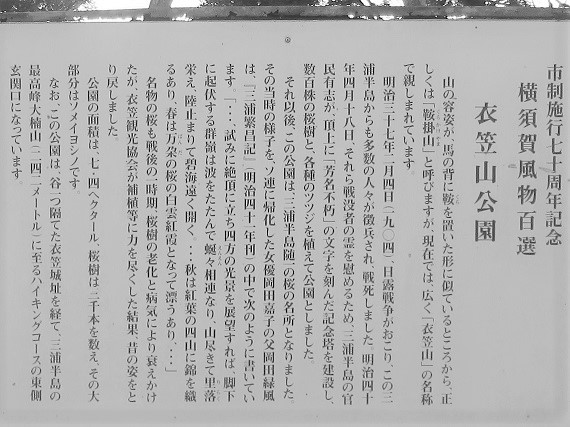 市制施行七十周年記念
横須賀風物百選
衣笠山公園
山の容姿が、馬の背に鞍を置いた形に似ているところから、正
しくは「鞍掛山」と呼びますが、現在では、広く「衣笠山」の名称
で親しまれています。
明治三十七年二月四日(一九〇四)、日露戦争がおこり、この三
浦半島からも多数の人々が徴兵され、戦死しました。明治四十
年四月十八日、それら戦没者の霊を慰めるため、三浦半島の官
民有志が、頂上に「芳名不朽」の文字を刻んだ記念塔を建設し、
数百株の桜樹と、各種のツツジを植えて公園としました。
それ以後、この公園は、三浦半島随一の桜の名所となりました。
その当時の様子を、ソ連に帰化した女優岡田嘉子の父岡田緑風
は、「三浦繁昌記」(明治四十一年刊)の中で次のように書いてい
ます。「・・・試みに絶頂に立ち四方の光景を展望すれば、脚下
に起伏する群嶺は波をたたんで蜒々相連なり、山尽きて里落
栄え、陸止まりて碧海遠く開く。・・・秋は紅葉の四山に錦を織
るあり、春は万朶の桜の白雲紅霞となって漂うあり、・・・」
名物の桜も戦後の一時期、桜樹の老化と病気により衰えかけ
たが、衣笠観光協会が補植等に力を尽くした結果、昔の姿をと
り戻しました。
公園の面積は、七・四ヘクタール、桜樹は二千本を数え、その大
部分はソメイヨシノです。
なお、この公園は、谷一つ隔てた衣笠城址を経て、三浦半島の
最高峰大楠山(二四二メートル)に至るハイキングコースの東側
玄関口になっています。